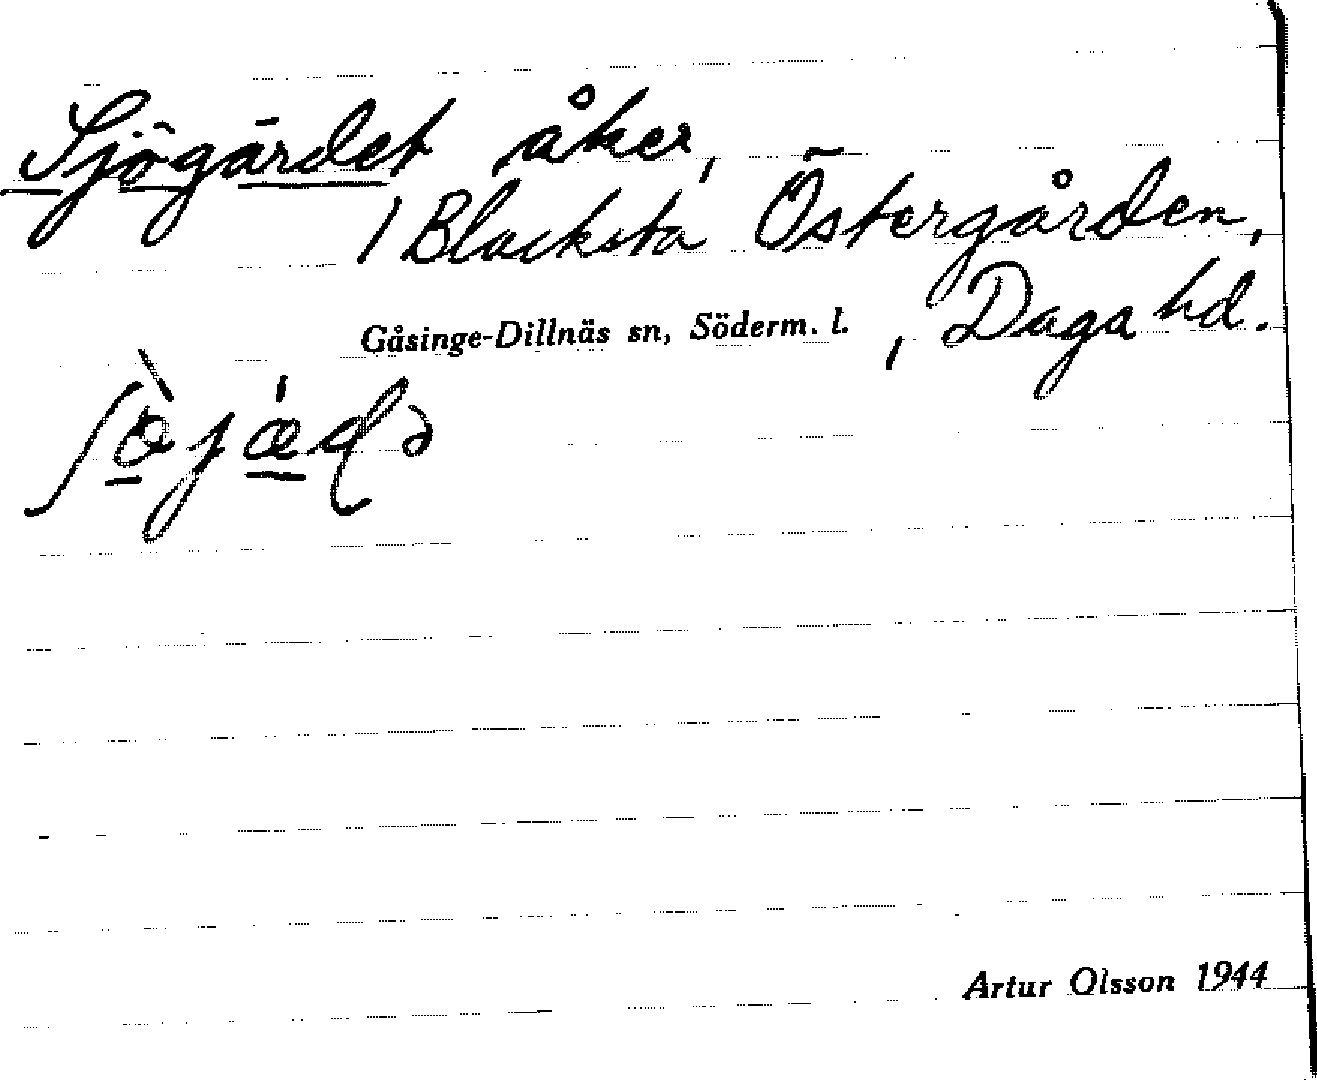 Sjögärdet åker,
/ Blacksta Östergården,
Gåsinge-Dillnäs sn, Söderm. l. , Daga hd.
Artur Olsson 1944